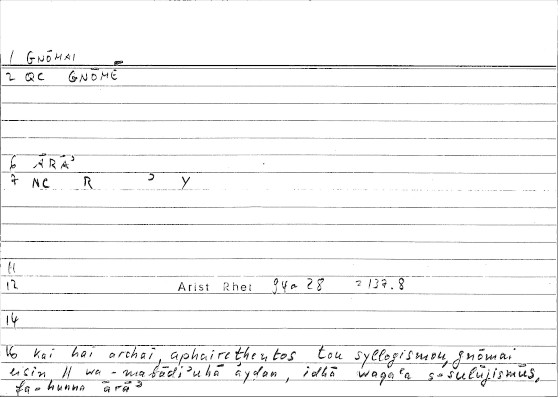 1 GNŌMAI
2 QC GNŌMĒ
6 ĀRĀʾ
7 NC R ʾ Y
11
12 Arist Rhet 94a 28 =137.8
14
16 kai hai archai, aphairethentos tou syllogismou, gnōmai
eisin // wa-mabādiʾuhā ayḍan, idhā waqaʿa s-sulūjismūs,
fa-hunna ārāʾ